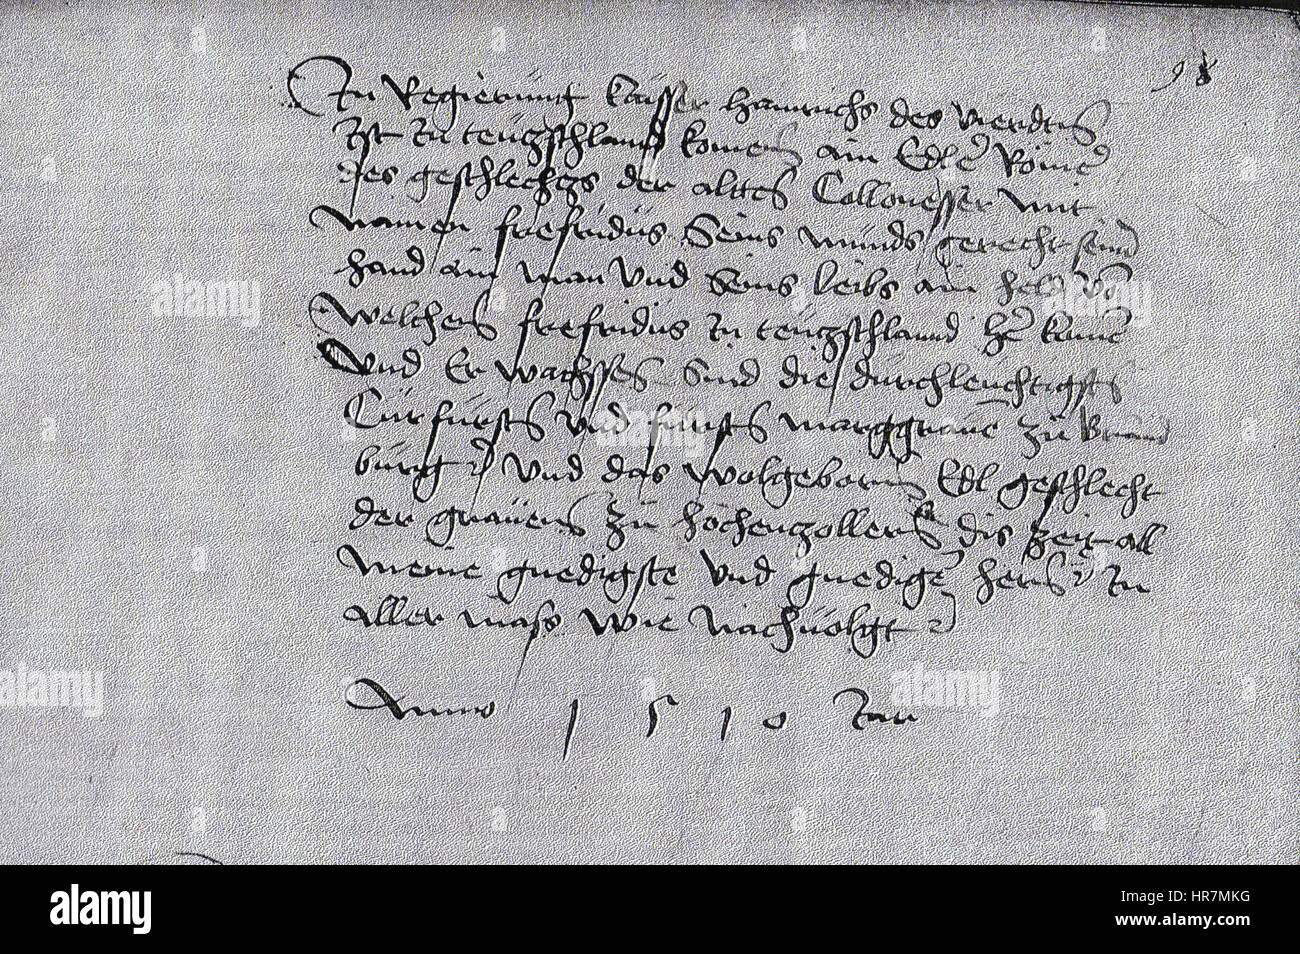 In Regierung kaisser Hainrichs des vierdten
Ist In teutzschland komen ain Edle Röme
des geschlechtz der alten Collonesser mit
namen frefridus Seins munds gerecht sein
hand ain man Und Seins leibs ain held vo
Welchen frefridus In teutzschland he kume
Und Er wachssen Sind die durchleuchtigsten
Curfursten Und fursten marggraue zu Brand
burg Und das wolgeboren Edl geschlecht
der grauen zu hochenzollern dis Zeit all
meine gnedigste Und gnedige hern In
aller mass wie nachuolgt
Anno 1510 Jar
alamy
HR7MKG
www.alamy.com